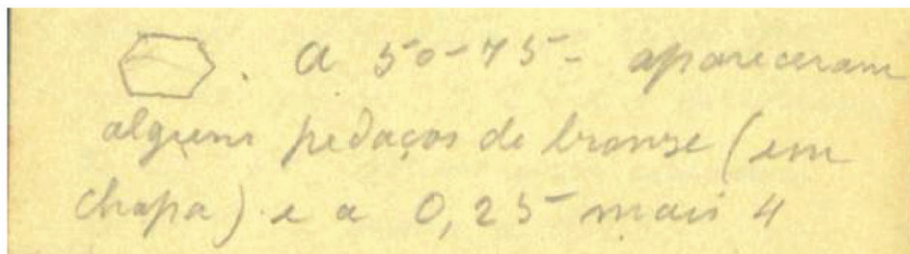 . A 50-75 - apareceram
alguns pedaços de bronze (em
chapa) e a 0,25 mais 4